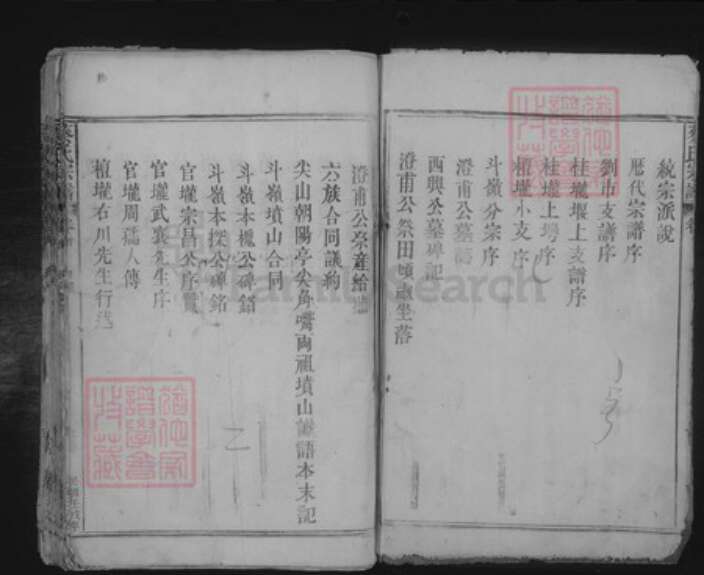 統宗派說
歷代宗譜序
劉市支譜序
桂壠堰上支譜序
桂壠上塆序
檀壠小支序
斗嶺分宗序
澄甫公墓
西興公墓碑記
澄甫公祭田坐落
澄甫公祭產給
六族合同議約
尖山朝陽亭尖角嘴兩祖墳山讞語本末記
斗嶺墳山合同
斗嶺本概公碑銘
斗嶺本探公碑銘
官壠宗昌公序贊
官壠武襄先生序
官壠周孺人傳
檀壠右川先生行述
氏宗譜
FamilySearch